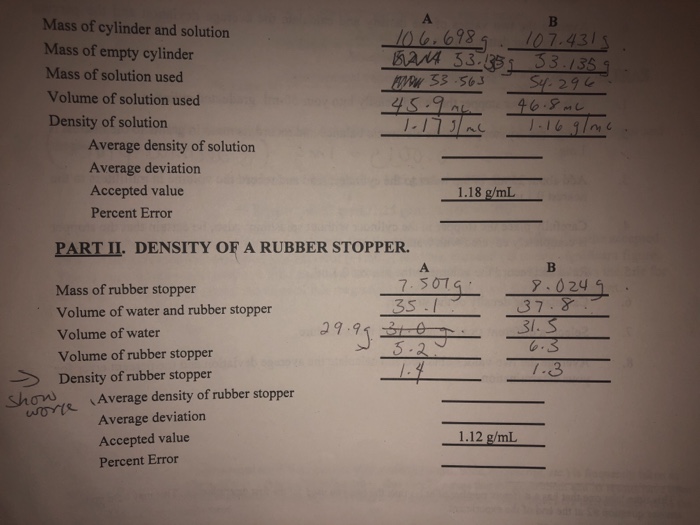 A B
Mass of cylinder and solution 106.698g 107.431g
Mass of empty cylinder 53.135g 53.135g
Mass of solution used 53.563 54.296
Volume of solution used 45.9 mL 46.8 mL
Density of solution 1.17 g/mL 1.16 g/mL
Average density of solution
Average deviation
Accepted value 1.18 g/mL
Percent Error
PART II. DENSITY OF A RUBBER STOPPER.
A B
Mass of rubber stopper 7.507g 8.024g
Volume of water and rubber stopper 35.1 37.8
Volume of water 29.9g 31.0 31.5
Volume of rubber stopper 5.2 6.3
→ Density of rubber stopper 1.4 1.3
show Average density of rubber stopper
Average deviation
Accepted value 1.12 g/mL
Percent Error